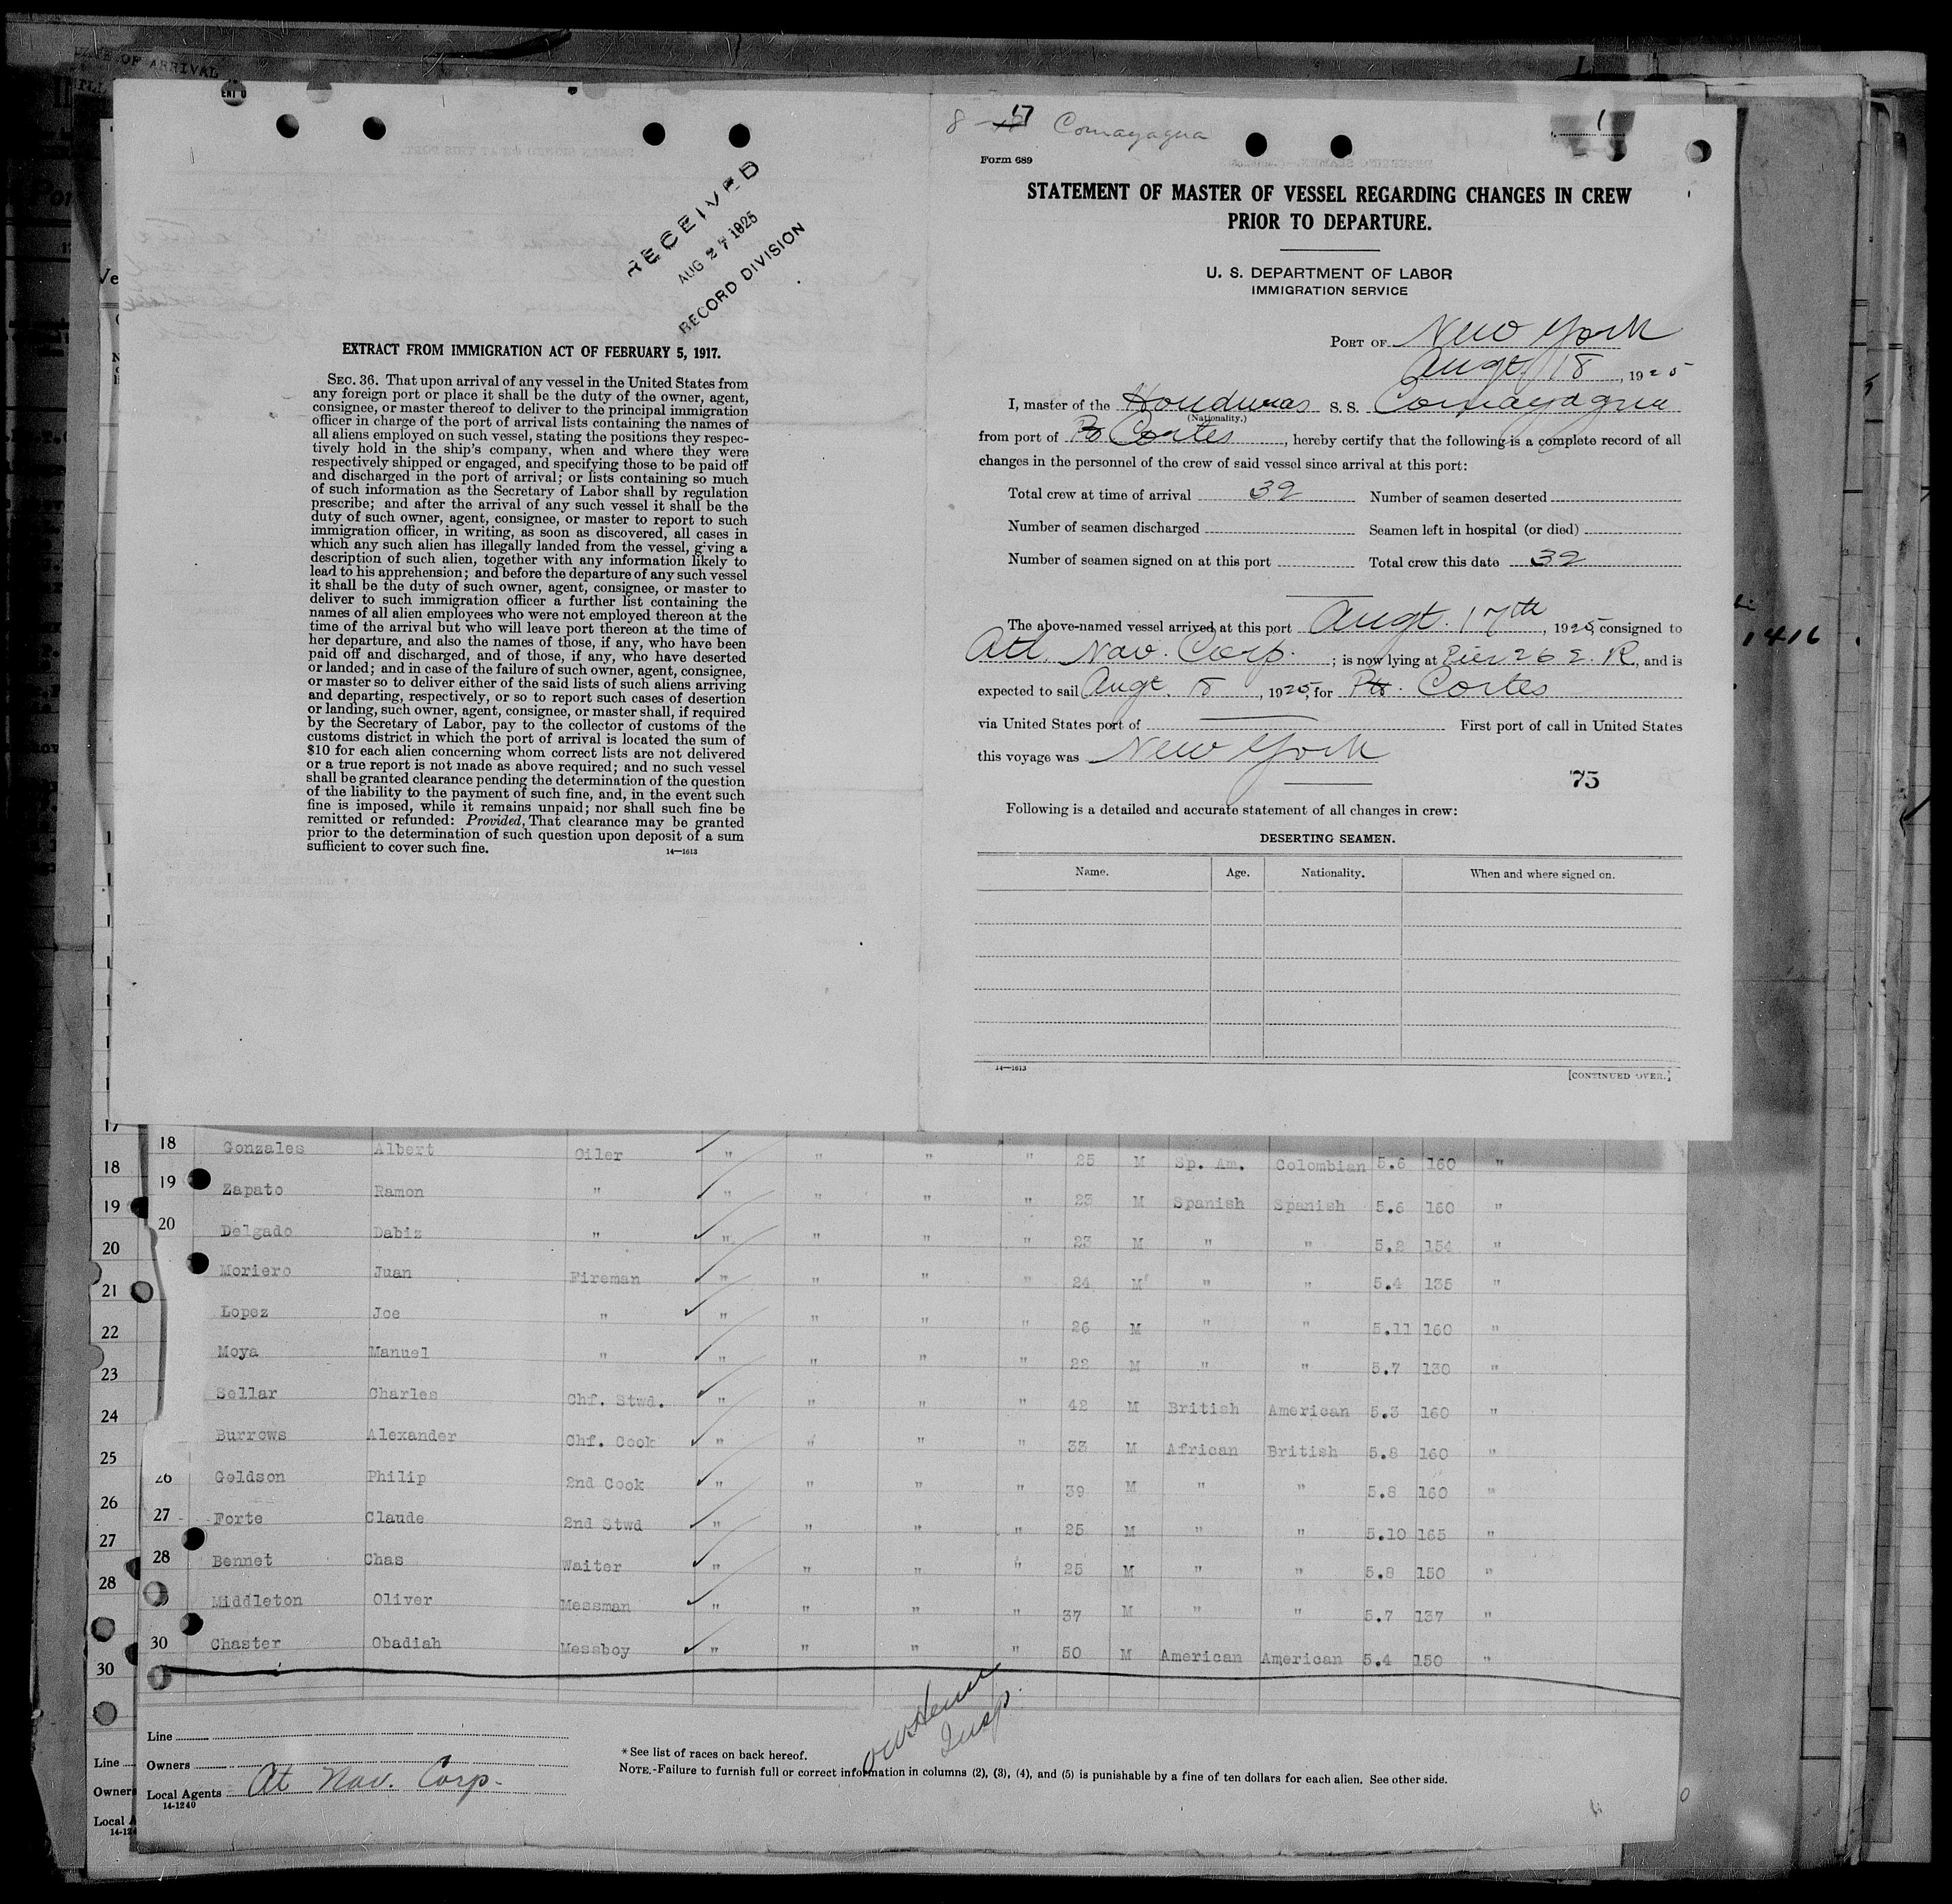 RECEIVED
AUG 27 1925
RECORD DIVISION
EXTRACT FROM IMMIGRATION ACT OF FEBRUARY 5, 1917.
SEC. 36. That upon arrival of any vessel in the United States from
any foreign port or place it shall be the duty of the owner, agent,
consignee, or master thereof to deliver to the principal immigration
officer in charge of the port of arrival lists containing the names of
all aliens employed on such vessel, stating the positions they respec-
tively hold in the ship's company, when and where they were
respectively shipped or engaged, and specifying those to be paid off
and discharged in the port of arrival; or lists containing so much
of such information as the Secretary of Labor shall by regulation
prescribe; and after the arrival of any such vessel it shall be the
duty of such owner, agent, consignee, or master to report to such
immigration officer, in writing, as soon as discovered, all cases in
which any such alien has illegally landed from the vessel, giving a
description of such alien, together with any information likely to
lead to his apprehension; and before the departure of any such vessel
it shall be the duty of such owner, agent, consignee, or master to
deliver to such immigration officer a further list containing the
names of all alien employees who were not employed thereon at the
time of the arrival but who will leave port thereon at the time of
her departure, and also the names of those, if any, who have been
paid off and discharged, and of those, if any, who have deserted
or landed; and in case of the failure of such owner, agent, consignee,
or master so to deliver either of the said lists of such aliens arriving
and departing, respectively, or so to report such cases of desertion
or landing, such owner, agent, consignee, or master shall, if required
by the Secretary of Labor, pay to the collector of customs of the
customs district in which the port of arrival is located the sum of
$10 for each alien concerning whom correct lists are not delivered
or a true report is not made as above required; and no such vessel
shall be granted clearance pending the determination of the question
of the liability to the payment of such fine, and, in the event such
fine is imposed, while it remains unpaid; nor shall such fine be
remitted or refunded: Provided, That clearance may be granted
prior to the determination of such question upon deposit of a sum
sufficient to cover such fine.
14—1613
8 - 17 Comayagua
1
Form 689
STATEMENT OF MASTER OF VESSEL REGARDING CHANGES IN CREW
PRIOR TO DEPARTURE.
U. S. DEPARTMENT OF LABOR
IMMIGRATION SERVICE
PORT OF New York
Augt 18, 1925
I, master of the Honduras S. S. Comayagua
(Nationality.)
from port of Po Cortes, hereby certify that the following is a complete record of all
changes in the personnel of the crew of said vessel since arrival at this port:
Total crew at time of arrival 32 Number of seamen deserted
Number of seamen discharged Seamen left in hospital (or died)
Number of seamen signed on at this port Total crew this date 32
The above-named vessel arrived at this port Augt. 17th, 1925, consigned to
Atl. Nav. Corp. ; is now lying at Pier 26 E. R, and is
expected to sail Augt. 18, 1925, for Pto. Cortes
via United States port of First port of call in United States
this voyage was New York
75
Following is a detailed and accurate statement of all changes in crew:
DESERTING SEAMEN.
Name. Age. Nationality. When and where signed on.
14—1613
[CONTINUED OVER.]
1416
18 Gonzales Albert Oiler " " " " 25 M Sp. Am. Colombian 5.6 160 "
19 Zapato Ramon " " " " " 23 M Spanish Spanish 5.6 160 "
20 Delgado Dabiz " " " " " 23 M " " 5.2 154 "
Moriero Juan Fireman " " " " 24 M " " 5.4 135 "
Lopez Joe " " " " " 26 M " " 5.11 160 "
Moya Manuel " " " " " 22 M " " 5.7 130 "
Sellar Charles Chf. Stwd. " " " " 42 M British American 5.3 160 "
Burrows Alexander Chf. Cook " " " " 33 M African British 5.8 160 "
26 Geldson Philip 2nd Cook " " " " 39 M " " 5.8 160 "
27 Forte Claude 2nd Stwd " " " " 25 M " " 5.10 165 "
28 Bennet Chas Waiter " " " " 25 M " " 5.8 150 "
Middleton Oliver Messman " " " " 37 M " " 5.7 137 "
30 Chaster Obadiah Messboy " " " " 50 M American American 5.4 150 "
17
18
19
20
21
22
23
24
25
26
27
28
30
Insp.
Line
Owners
Local Agents At Nav. Corp.
14-1240
*See list of races on back hereof.
NOTE.-Failure to furnish full or correct information in columns (2), (3), (4), and (5) is punishable by a fine of ten dollars for each alien. See other side.
Line
Owners
Local A